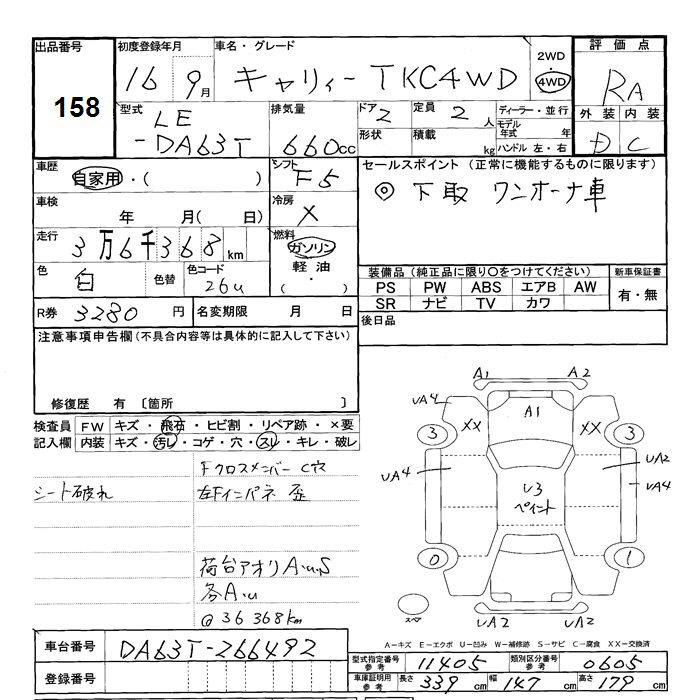 出品番号
158
初度登録年月
16 9月
車名・グレード
キャリィー TKC4WD
2WD
4WD
評価点
RA
外装 内装
D C
型式
LE
-DA63T
排気量
660cc
ドア 2
定員 2人
形状
積載 kg
ディーラー・並行
モデル年式 年
ハンドル 左・右
車歴
自家用・( )
シフト
F5
セールスポイント (正常に機能するものに限ります)
◎ 下取 ワンオーナ車
車検
年 月( 日)
冷房
×
走行
3万6千368km
燃料
ガソリン
軽油
・
( )
色
白
色替
色コード
26u
装備品 (純正品に限り○をつけてください)
新車保証書
PS PW ABS エアB AW
有・無
SR ナビ TV カワ
R券 3280円
名変期限 月 日
後日品
注意事項申告欄 (不具合内容等は具体的に記入して下さい)
修復歴 有 〔箇所 〕
検査員
記入欄
FW キズ・飛石・ヒビ割・リペア跡・×要
内装 キズ・汚レ・コゲ・穴・スレ・キレ・破レ
Fクロスメンバー C穴
シート破れ
左Fインパネ 歪
荷台アオリ A.u.S
各A.u
@36368km
A1 A2
UA4
A1
XX XX
3 3
UA4
UA2
U3
ペイント
UA4
0 1
スペア
UA2 UA2
A=キズ E=エクボ U=凹み W=補修跡 S=サビ C=腐食 XX=交換済
車台番号
DA63T-266492
登録番号
型式指定番号
参考
11405
類別区分番号
参考
0605
車庫証明用
参考
長さ 339cm
幅 147cm
高さ 179cm